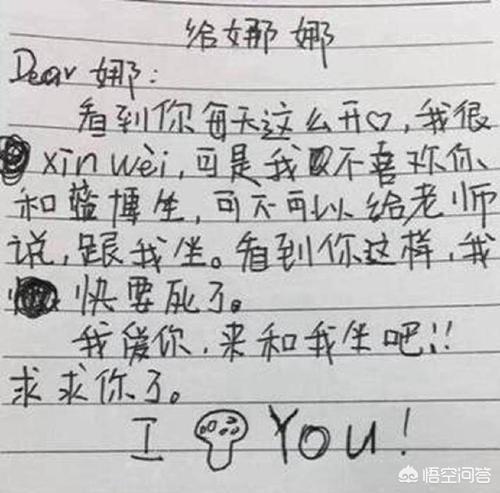 给娜娜
Dear 娜:
看到你每天这么开♡,我很
xin wèi,可是我不喜欢你
和蓝博生,可不可以给老师
说,跟我坐。看到你这样,我
快要死了。
我爱你,来和我坐吧!!
求求你了。
I You!
悟空问答